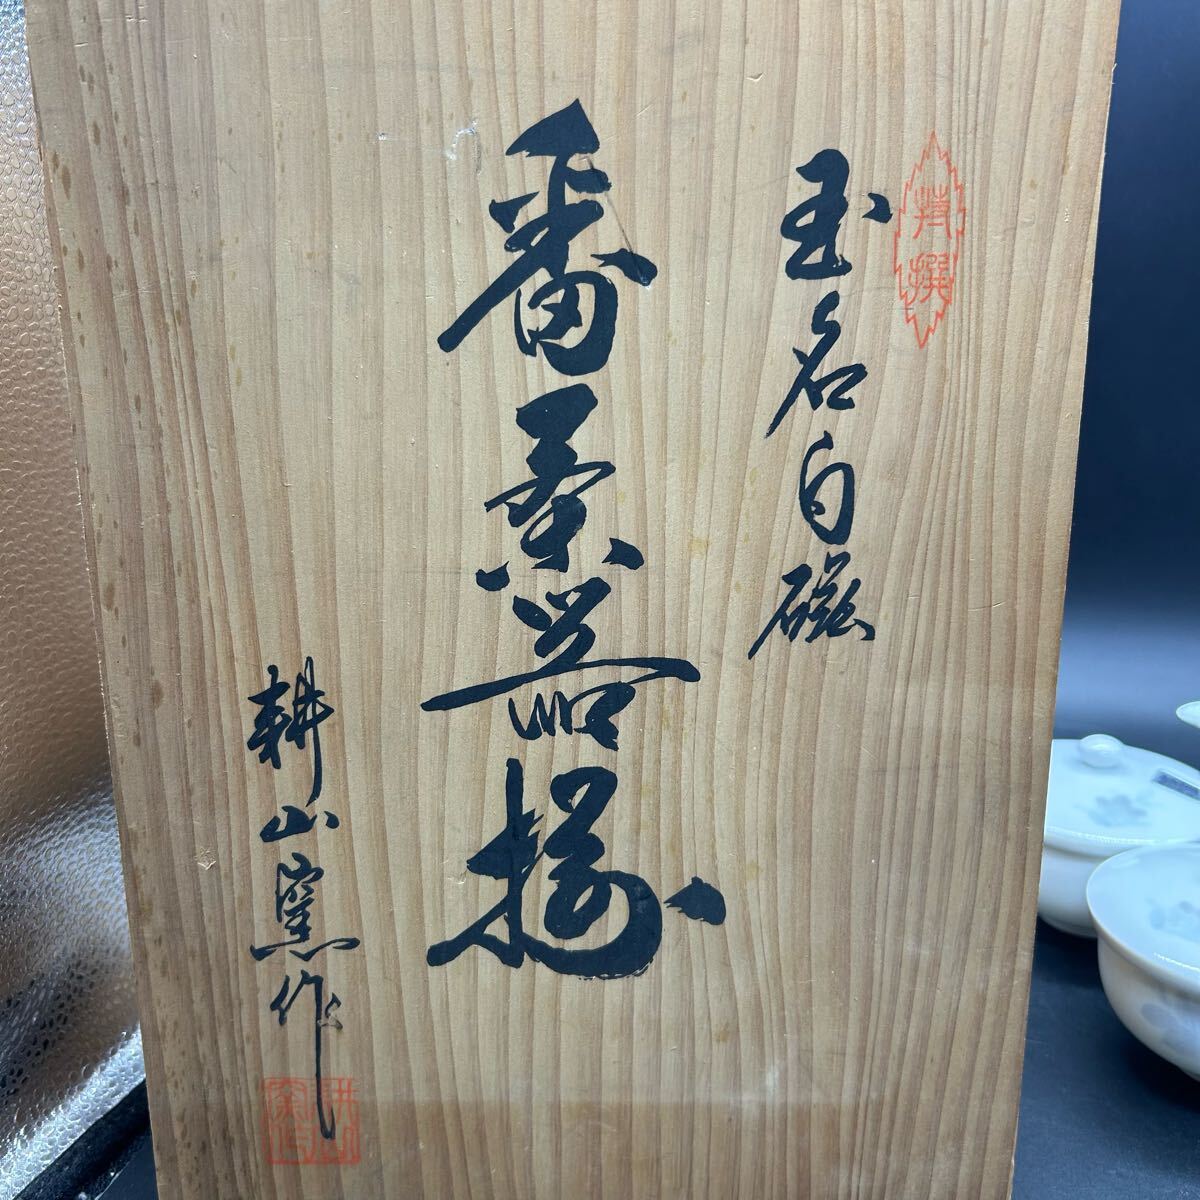 特撰
玉名白磁
番茶器揃
耕山窯作